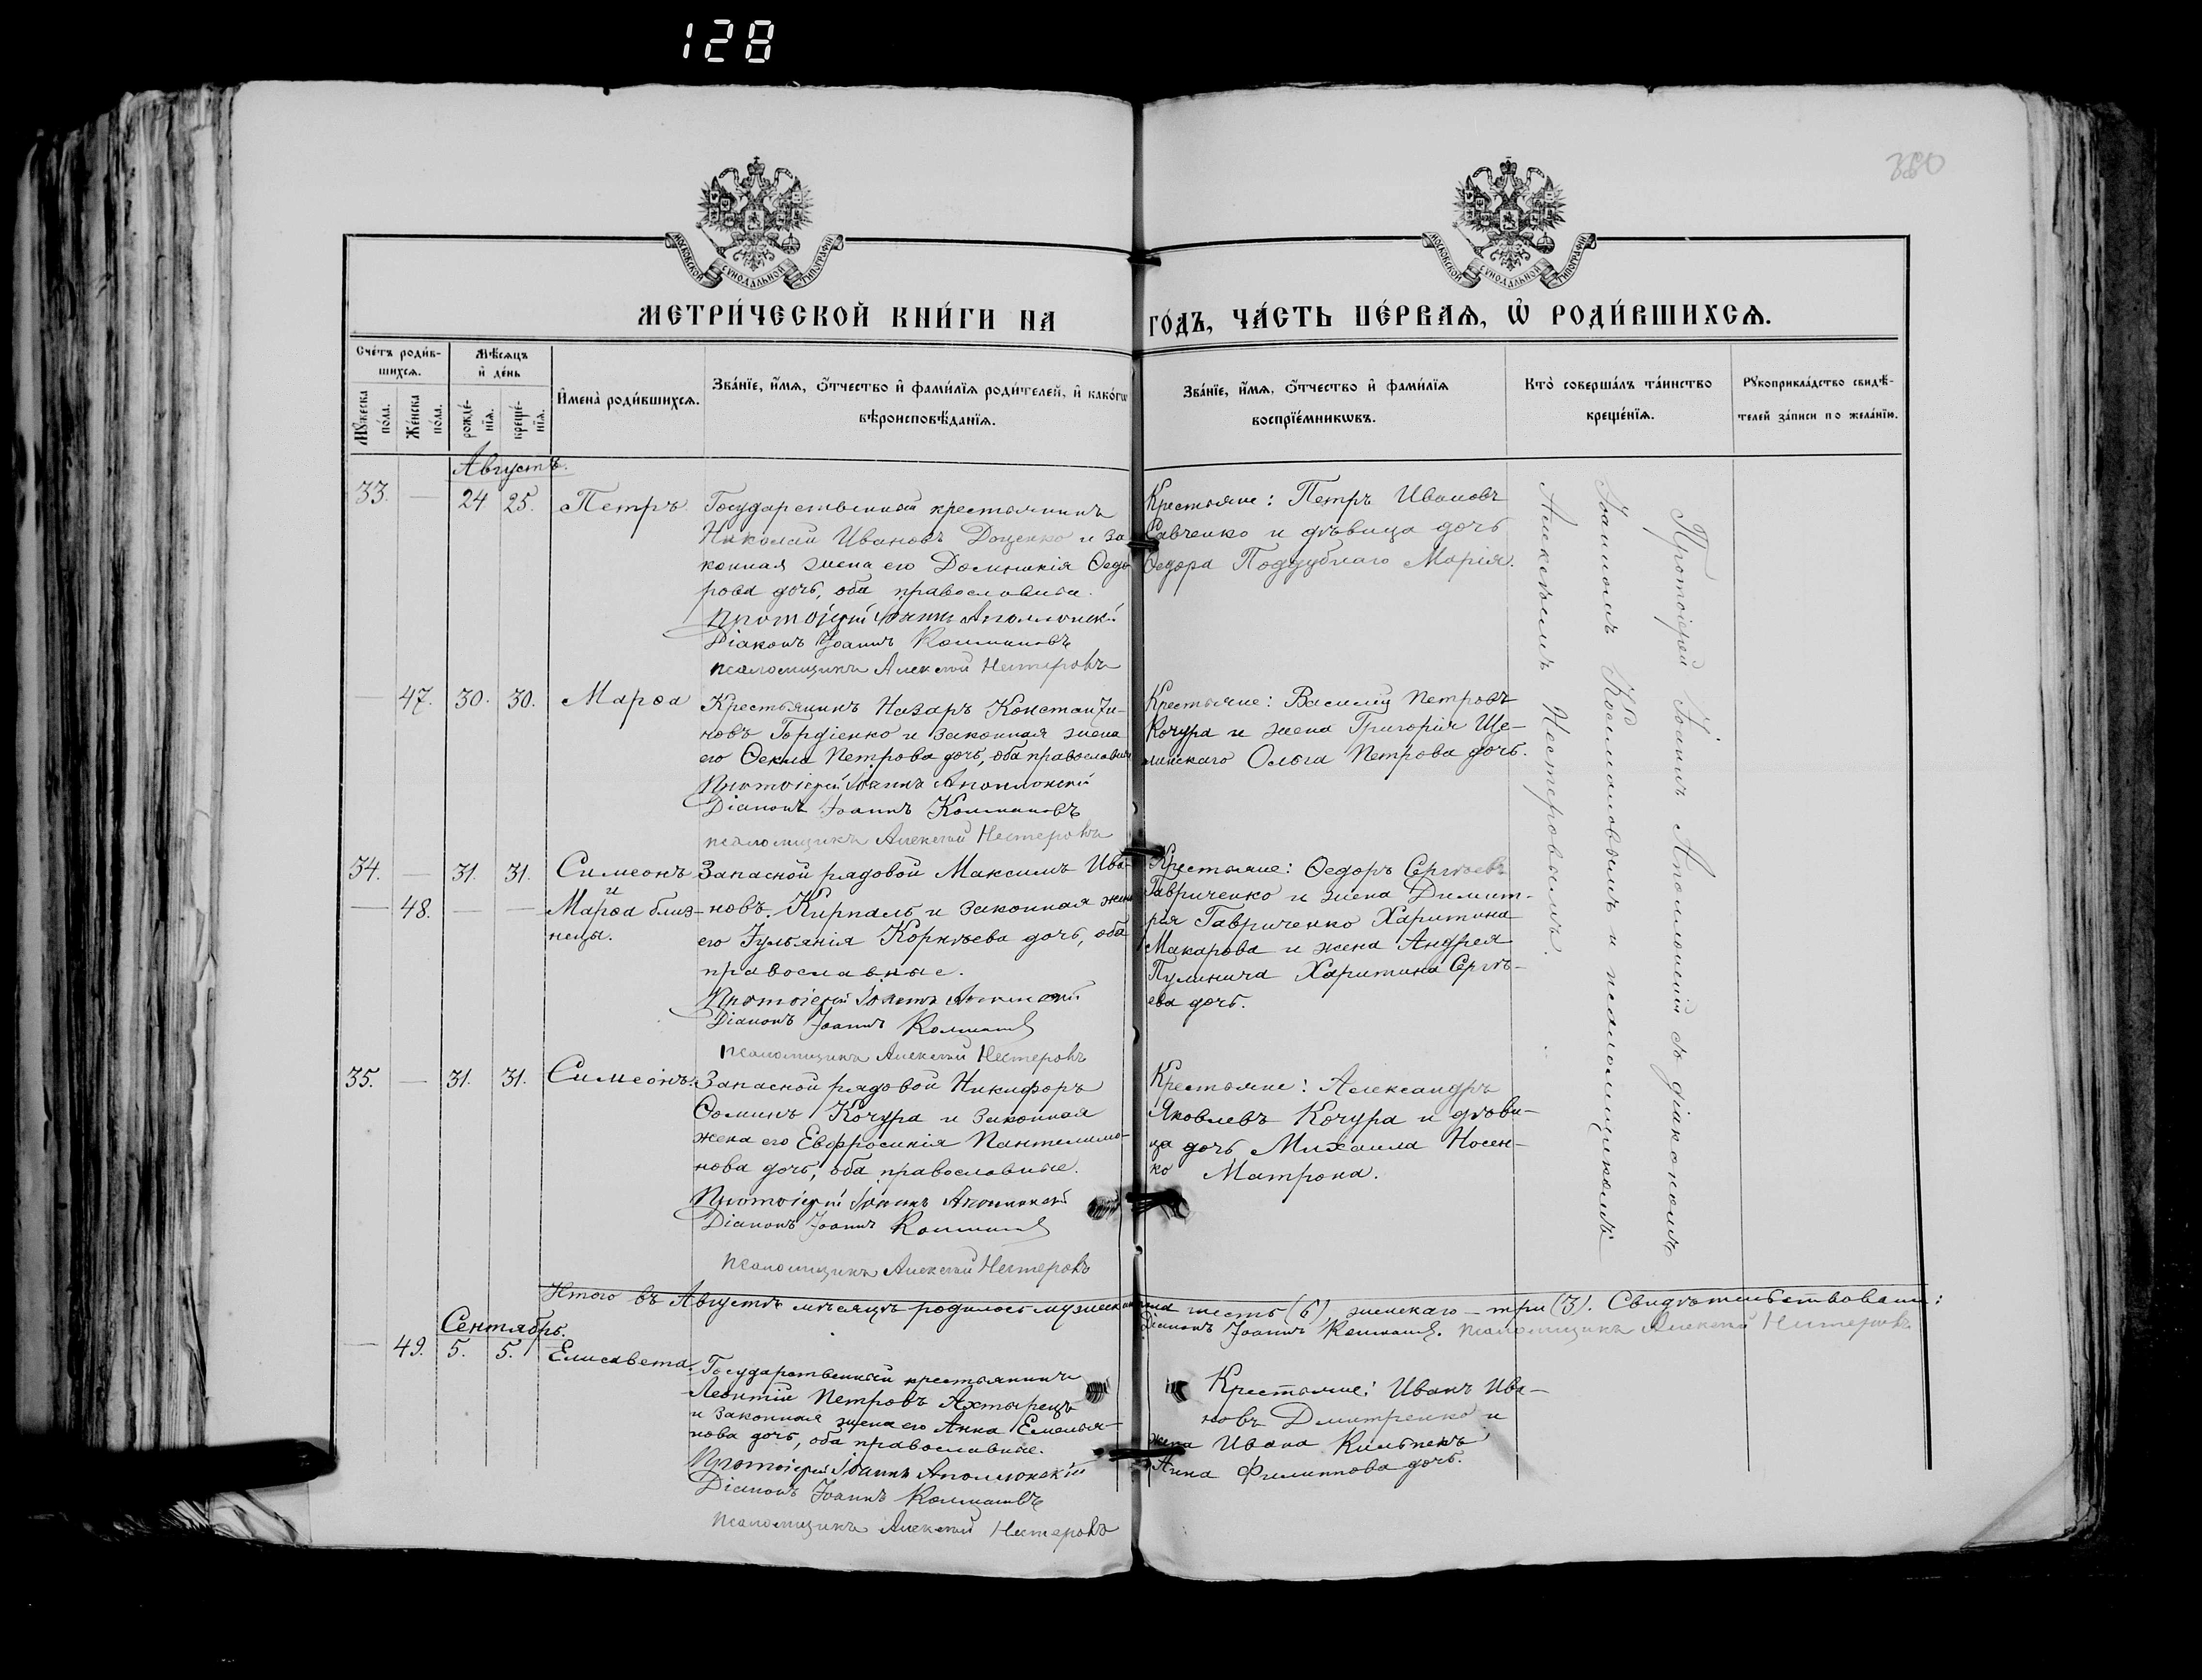 128
380
МОСКОВСКОЙ СѴНОДАЛЬНОЙ ТИПОГРАФІИ
МОСКОВСКОЙ СѴНОДАЛЬНОЙ ТИПОГРАФІИ
МЕТРИ́ЧЕСКОЙ КНИ́ГИ НА
ГО́ДЪ, ЧА́СТЬ ПЕ́РВАѦ, Ѡ҆ РОДИ́ВШИХСѦ.
Сче́тъ роди́в-
шихсѧ.
Мꙋ́жеска
по́ла.
Же́нска
по́ла.
Мѣ́сѧцъ
и҆ де́нь
рожде́-
нїѧ.
креще́-
нїѧ.
И҆мена̀ роди́вшихсѧ.
Зва́нїе, и҆́мѧ, ѻ҆́тчество и҆ фами́лїѧ роди́телей, и҆ како́гѡ
вѣроисповѣ́данїѧ.
Зва́нїе, и҆́мѧ, ѻ҆́тчество и҆ фами́лїѧ
воспрїе́мникѡвъ.
Кто̀ соверша́лъ та́инство
креще́нїѧ.
Рꙋкоприкла́дство свидѣ́-
телей за́писи по жела́нїю.
Августъ.
33. — 24 25. Петръ.
Государственный крестьянинъ
Николай Ивановъ Доценко и за
конная жена его Домникія Ѳедо
рова дочь, оба православные.
Протоіерей Іоаннъ Аполлонскій
Діаконъ Іоаннъ Колмаковъ
псаломщикъ Алексѣй Нестеровъ
Крестьяне: Петръ Ивановъ
Савченко и дѣвица дочь
Ѳедора Поддубнаго Марія.
— 47. 30. 30. Марѳа
Крестьянинъ Назаръ Константи-
новъ Гордіенко и законная жена
его Ѳекла Петрова дочь, оба православные
Протоіерей Іоаннъ Аполлонскій
Діаконъ Іоаннъ Колмаковъ
псаломщикъ Алексѣй Нестеровъ
Крестьяне: Василій Петровъ
Кочура и жена Григорія Ще-
линскаго Ольга Петрова дочь.
34. — 31. 31. Симеонъ
и
— 48. — — Марѳа близ-
нецы.
Запасной рядовой Максимъ Ива-
новъ Кирпаль и законная жена
его Іульянія Корнѣева дочь, оба
православные.
Протоіерей Іоаннъ Аполлонскій
Діаконъ Іоаннъ Колмаковъ
псаломщикъ Алексѣй Нестеровъ
Крестьяне: Ѳедоръ Сергѣевъ
Гавриченко и жена Димит-
рія Гавриченко Харитина
Макарова и жена Андрея
Пулинича Харитина Сергѣ-
ева дочь.
35. — 31. 31. Симеонъ.
Запасной рядовой Никифоръ
Ѳоминъ Кочура и законная
жена его Евфросинія Пантелимо-
нова дочь, оба православные.
Протоіерей Іоаннъ Аполлонскій
Діаконъ Іоаннъ Колмаковъ
псаломщикъ Алексѣй Нестеровъ
Крестьяне: Александръ
Яковлевъ Кочура и дѣви-
ца дочь Михаила Носен-
ко Матрона.
Протоіерей Іоаннъ Аполлонскій съ діакономъ
Іоанномъ Колмаковымъ и псаломщикомъ
Алексѣемъ Нестеровымъ.
Итого въ Августѣ мѣсяцѣ родилось мужеска пола шесть (6), женскаго — три (3). Свидѣтельствовали:
Діаконъ Іоаннъ Колмаковъ. псаломщикъ Алексѣй Нестеровъ
Сентябрь.
— 49. 5. 5. Елисавета.
Государственный крестьянинъ
Леонтій Петровъ Ахтырецъ
и законная жена его Анна Емелья-
нова дочь, оба православные.
Протоіерей Іоаннъ Аполлонскій
Діаконъ Іоаннъ Колмаковъ
псаломщикъ Алексѣй Нестеровъ
Крестьяне: Иванъ Ива-
новъ Дмитренко и
жена Ивана
Анна Филиппова дочь.